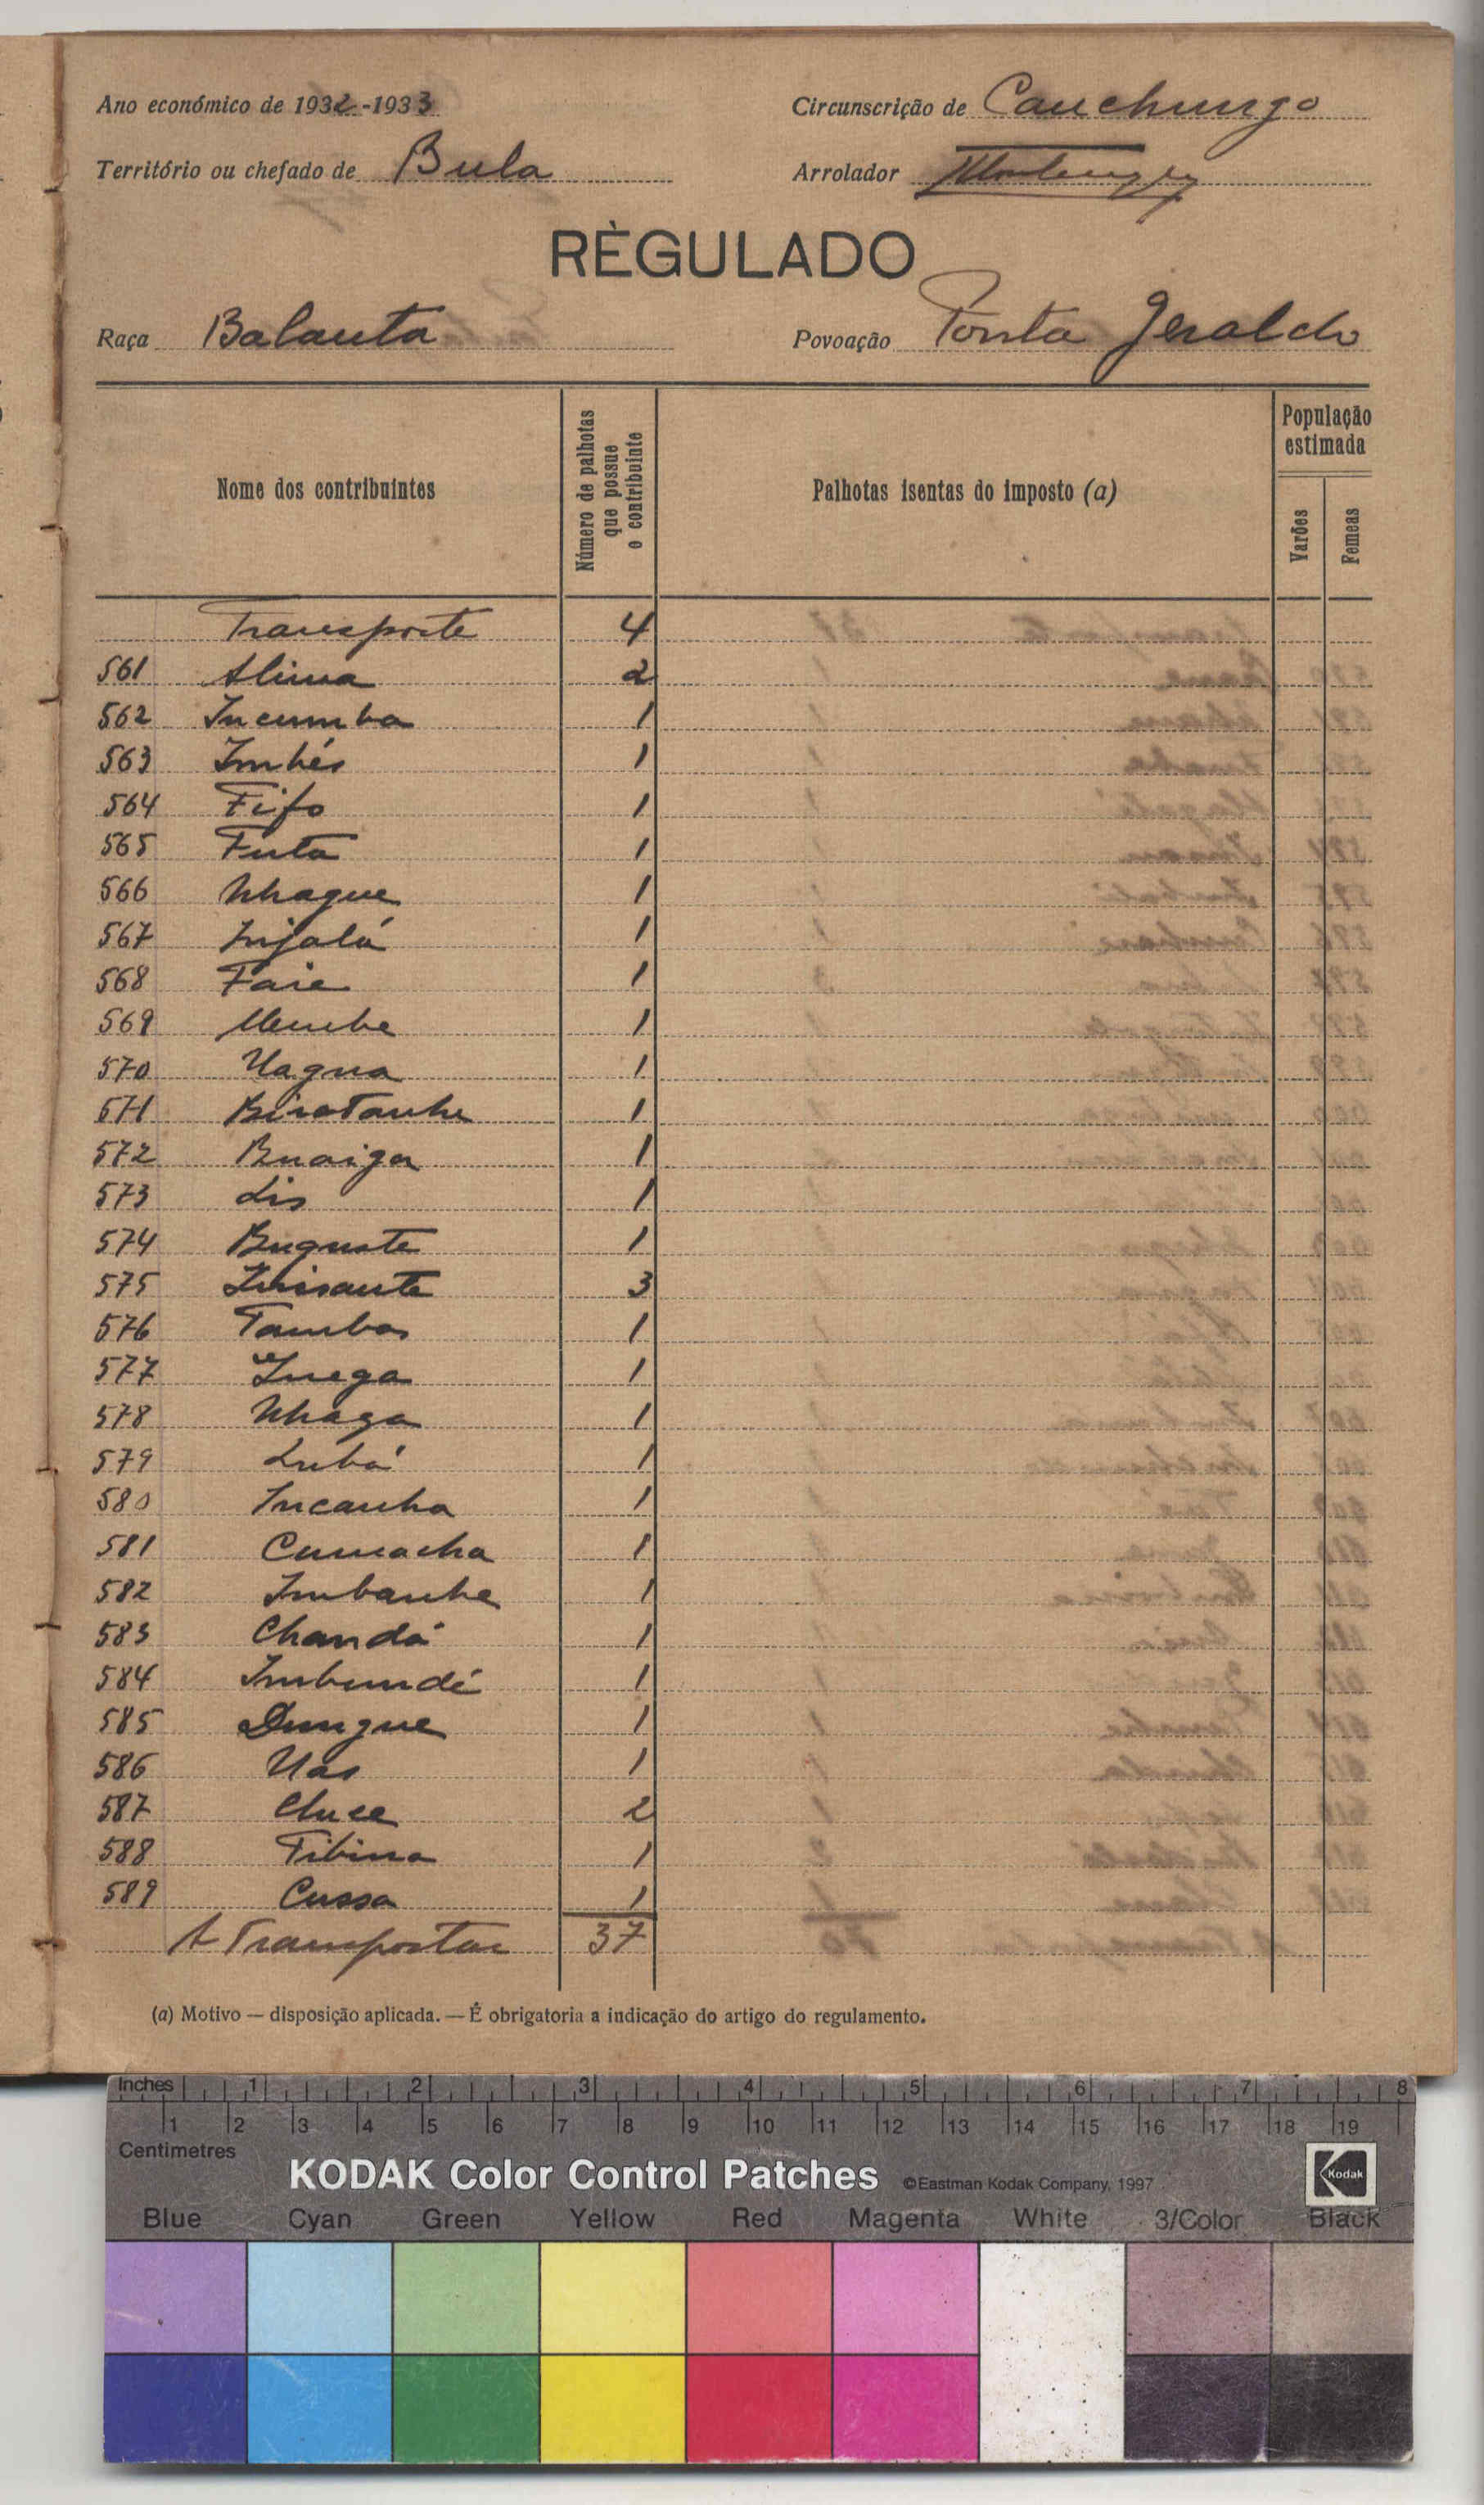 Ano económico de 1932-1933
Circunscrição de Cauchungo
Território ou chefado de Bula
Arrolador
RÈGULADO
Raça Balanta
Povoação Ponta Geraldo
Nome dos contribuintes
Número de palhotas que possue o contribuinte
Palhotas isentas do imposto (a)
População estimada
Varões
Femeas
Transporte 4
561 Alima 2
562 Incumba 1
563 Imbés 1
564 Fifo 1
565 Futa 1
566 Nhague 1
567 Injalá 1
568 Faie 1
569 1
570 Uagna 1
571 1
572 Buaiga 1
573 Lis 1
574 Buguate 1
575 3
576 Tambas 1
577 Inega 1
578 Nhaga 1
579 Lubá 1
580 Incanha 1
581 Cumacha 1
582 Imbanhe 1
583 Chandá 1
584 Imbundé 1
585 Dungue 1
586 Uas 1
587 2
588 Tibina 1
589 Cussa 1
A Transportar 37
(a) Motivo — disposição aplicada. — É obrigatoria a indicação do artigo do regulamento.
Inches 1 2 3 4 5 6 7 8
1 2 3 4 5 6 7 8 9 10 11 12 13 14 15 16 17 18 19
Centimetres
KODAK Color Control Patches ©Eastman Kodak Company, 1997
Kodak
Blue Cyan Green Yellow Red Magenta White 3/Color Black